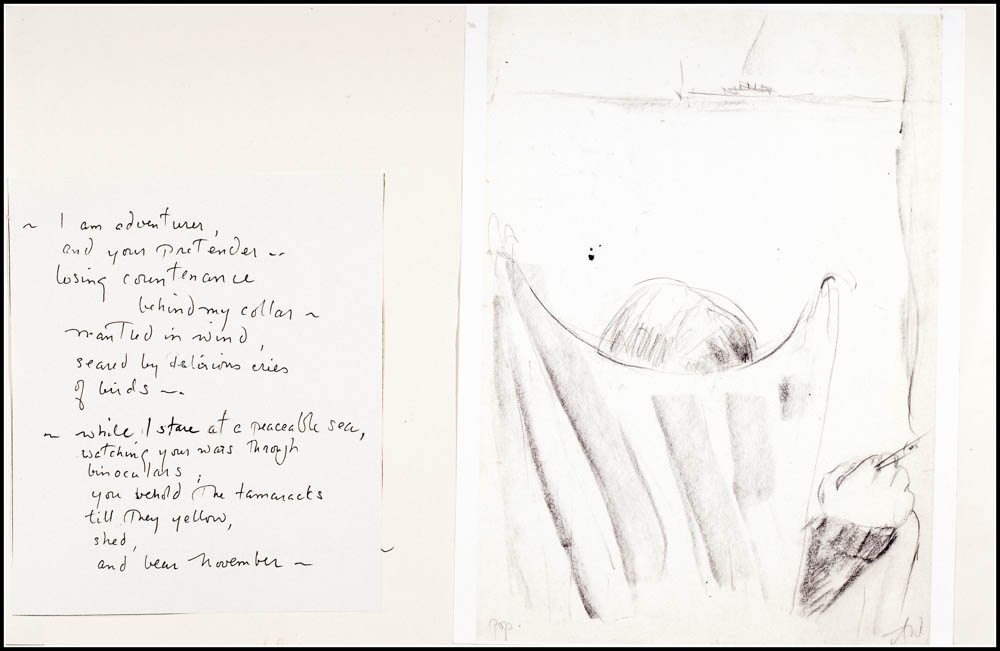 ~ I am adventurer,
and your pretender ~
losing countenance
behind my collar ~
mantled in wind,
seared by delirious cries
of birds ~.
~ while I stare at a peaceable sea,
watching your wars through
binoculars,
you behold the tamaracks
till they yellow,
shed,
and bear November ~
pop.